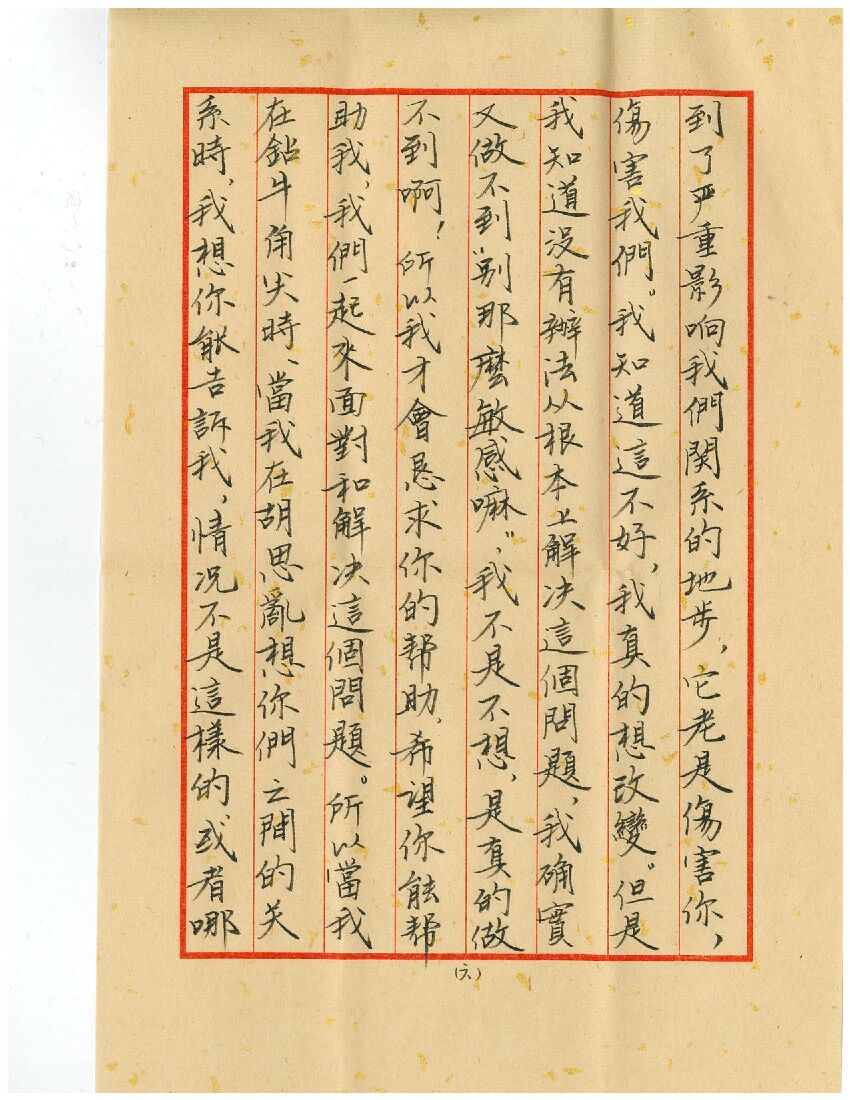 到了严重影响我們関系的地步，它老是傷害你，
傷害我們。我知道這不好，我真的想改變。但是
我知道没有辦法从根本上解决這個問題，我确實
又做不到“别那麼敏感嘛”，我不是不想，是真的做
不到啊！所以我才會恳求你的帮助，希望你能帮
助我，我們一起來面對和解决這個問題。所以當我
在鉆牛角尖時、當我在胡思亂想你們之間的关
系時，我想你能告訴我，情况不是這樣的或者哪
（六）